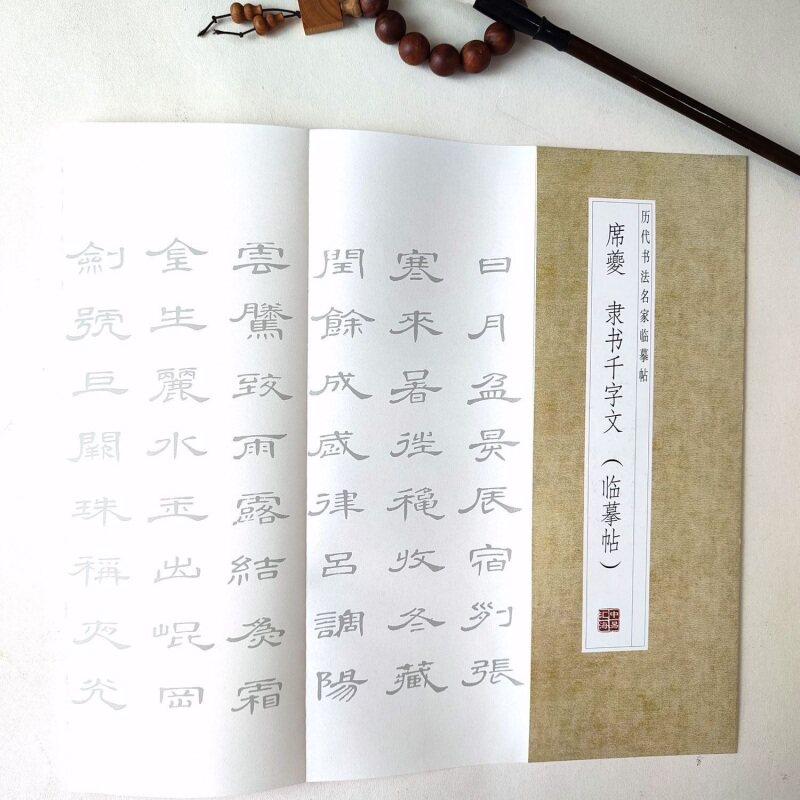 历代书法名家临摹帖
席夔 隶书千字文(临摹帖)
日月盈昃辰宿列張
寒來暑往穐收冬藏
閏餘成歲律呂調陽
雲騰致雨露結為霜
金生麗水玉出崐岡
劍號巨闕珠稱夜光